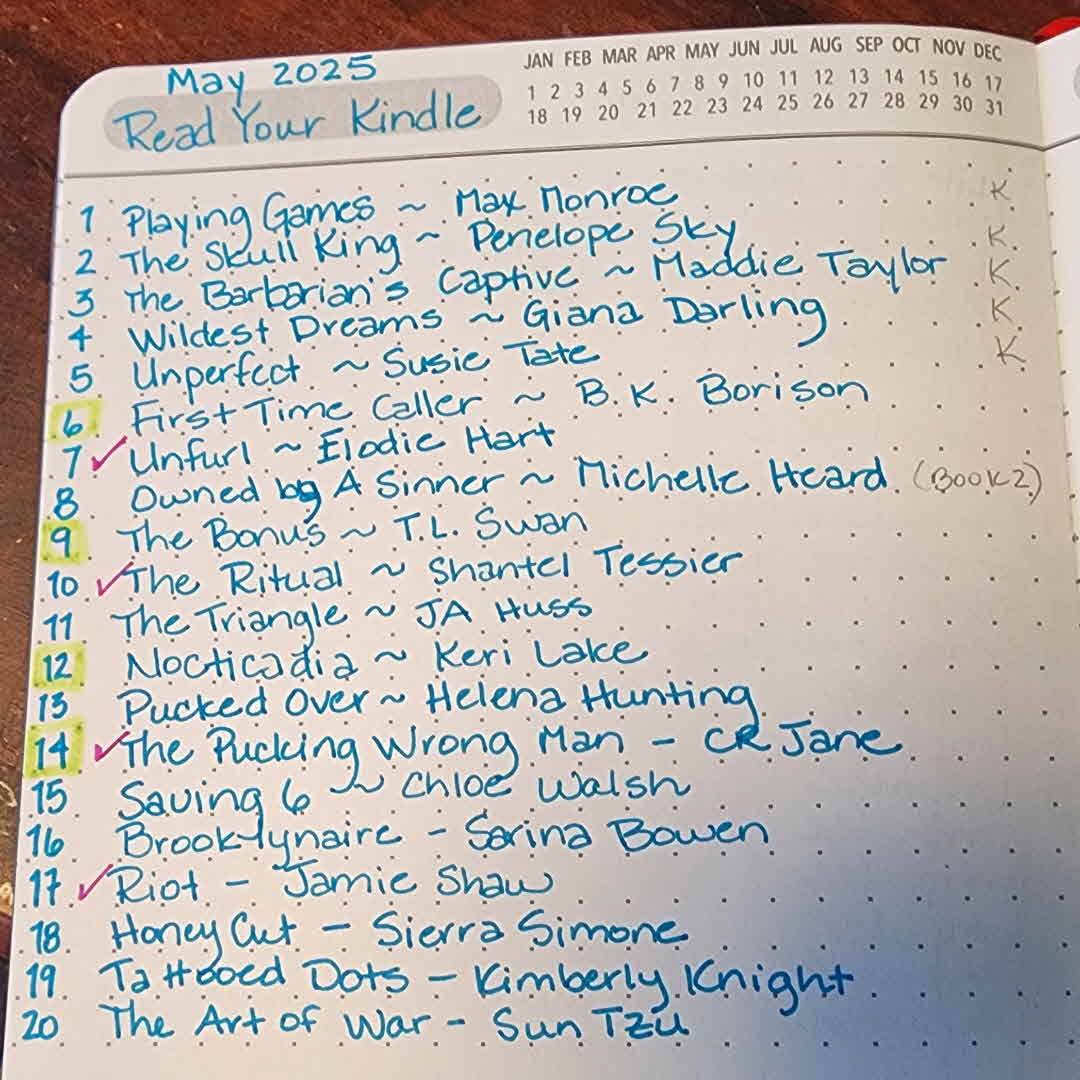 May 2025
Read Your Kindle
JAN FEB MAR APR MAY JUN JUL AUG SEP OCT NOV DEC
1 2 3 4 5 6 7 8 9 10 11 12 13 14 15 16 17
18 19 20 21 22 23 24 25 26 27 28 29 30 31
1 Playing Games ~ Max Monroe K
2 The Skull King ~ Penelope Sky K
3 The Barbarian's Captive ~ Maddie Taylor K
4 Wildest Dreams ~ Giana Darling K
5 Unperfect ~ Susie Tate K
6 First Time Caller ~ B.K. Borison
7 ✓ Unfurl ~ Elodie Hart
8 Owned by A Sinner ~ Michelle Heard (Book 2)
9 The Bonus ~ T.L. Swan
10 ✓ The Ritual ~ Shantel Tessier
11 The Triangle ~ JA Huss
12 Nocticadia ~ Keri Lake
13 Pucked Over ~ Helena Hunting
14 ✓ The Pucking Wrong Man - CR Jane
15 Saving 6 ~ Chloe Walsh
16 Brooklynaire - Sarina Bowen
17 ✓ Riot - Jamie Shaw
18 Honey Cut - Sierra Simone
19 Tattooed Dots - Kimberly Knight
20 The Art of War - Sun Tzu